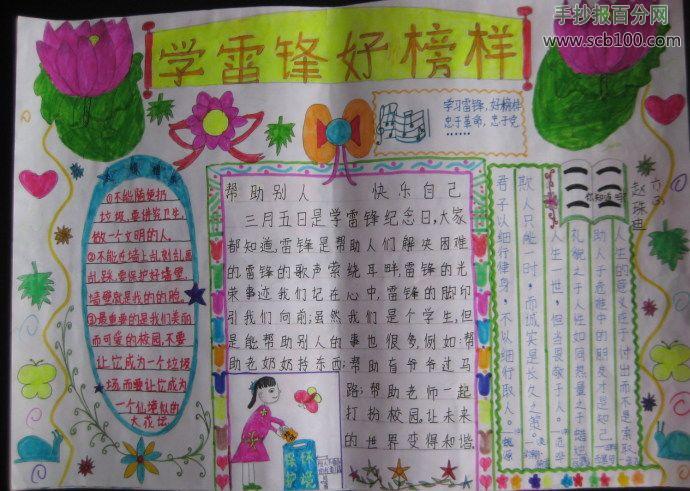 手抄报百分网
www.scb100.com
学雷锋好榜样
学习雷锋，好榜样
忠于革命，忠于党
……
①不能随便扔
垃圾，要讲究卫生，
做一个文明的人。
②不能在墙上乱刻乱画
乱踢，要保护好墙壁，
墙壁就是我的的脸。
③最重要的是我们美丽
而可爱的校园，不要
让它成为一个垃圾
场，而要让它成为
一个仙境似的
大花坛。
帮助别人 快乐自己
三月五日是学雷锋纪念日，大家
都知道，雷锋是帮助人们解决困难
的，雷锋的歌声萦绕耳畔，雷锋的光
荣事迹我们记在心中，雷锋的脚印
引我们向前；虽然我们是个学生，但
是能帮助别人的事也很多，例如：帮
助老奶奶拎东西；帮助盲爷爷过马
路；帮助老师一起
打扮校园，让未来
的世界变得和谐
保护
环境
赵珠迪
人生的意义在于付出而不是索取
助人于危难中的朋友才是知己
礼貌之于人性如同热量之于蜡烛
人生一世，但当畏敬于人
欺人只能一时，而诚实是长久之策
君子以细行律身，不以细行取人。